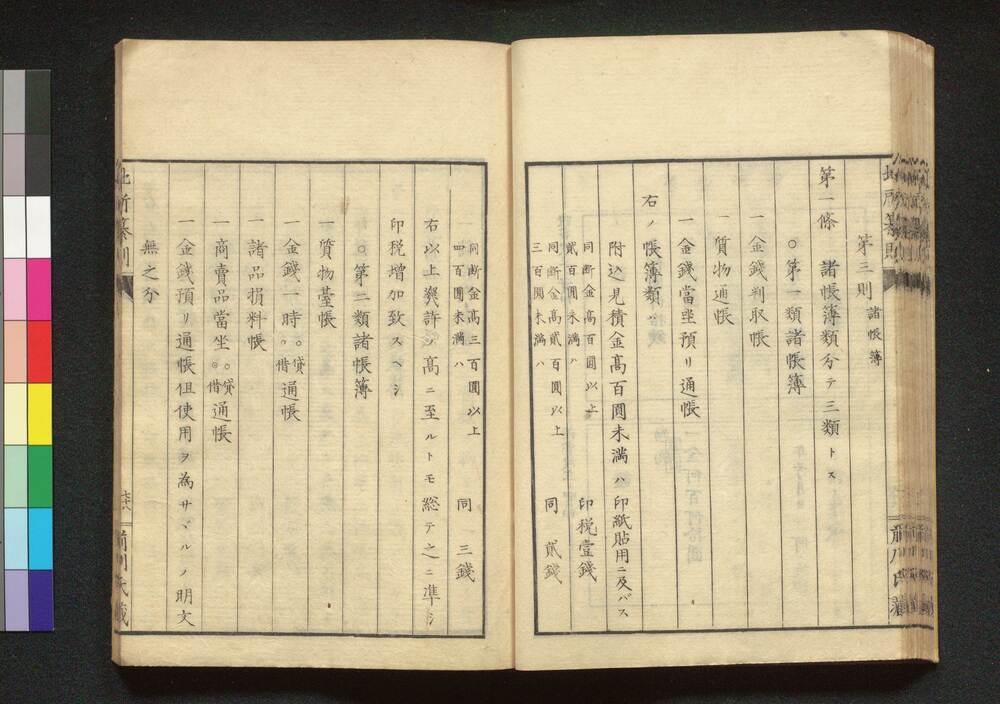 第三則 諸帳簿
第一條 諸帳簿類分テ三類トス
○第一類諸帳簿
一金錢判取帳
一質物通帳
一金錢當坐預リ通帳
右ノ帳簿類ハ
附込見積金髙百圓未滿ハ印紙貼用ニ及バス
同断金髙百圓以上
貳百圓未滿ハ 印税壹錢
同断金髙貳百圓以上
三百圓未滿ハ 同 貳錢
同断金髙三百圓以上
四百圓未滿ハ 同 三錢
右以上幾許ノ髙ニ至ルトモ総テ之ニ準シ
印税増加致スヘシ
○第二類諸帳簿
一質物臺帳
一金錢一時○貸○借通帳
一諸品損料帳
一商賣品當坐○貸○借通帳
一金錢預リ通帳但使用ヲ為サヾルノ明文
無之分